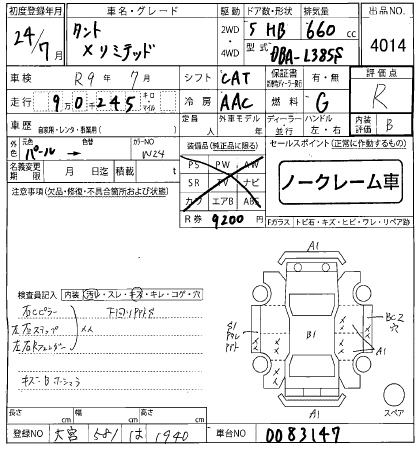 初度登録年月 車名・グレード 駆動 ドア数・形状 排気量 出品NO
24/7月 タント 2WD・4WD 5 HB 660cc 4014
Xリミテッド 型式 DBA-L385S
車検 R9年7月 シフト CAT 保証書 有・無 評価点
走行 9万0千245 キロ・マイル 冷房 AAC 燃料 G R
車歴 自家用・レンタ・事業用( ) 定員 人 外車モデル 年 ディーラー・並行 ハンドル 左・右 内装評価 B
色 元色 パール→ 色替 カラーNO W24 装備品(純正品に限る) セールスポイント(正常に作動するもの)
名義変更期限 月 日迄 積載 t PS PW AW
注意事項(欠品・修復・不具合箇所および状態) SR TV ナビ ノークレーム車
カワ エアB ABS
R券 9200円 Fガラス トビ石・キズ・ヒビ・ワレ・リペア跡
A1
検査員記入 内装 汚レ・スレ・キズ・キレ・コゲ・穴
右Cピラー
左右ステップ
左右Rフェンダー
B1
BC2
穴
A1
A1
スペア
長さ cm 幅 cm 高さ cm
登録NO 大宮 581 は 1940 車台NO 0083147